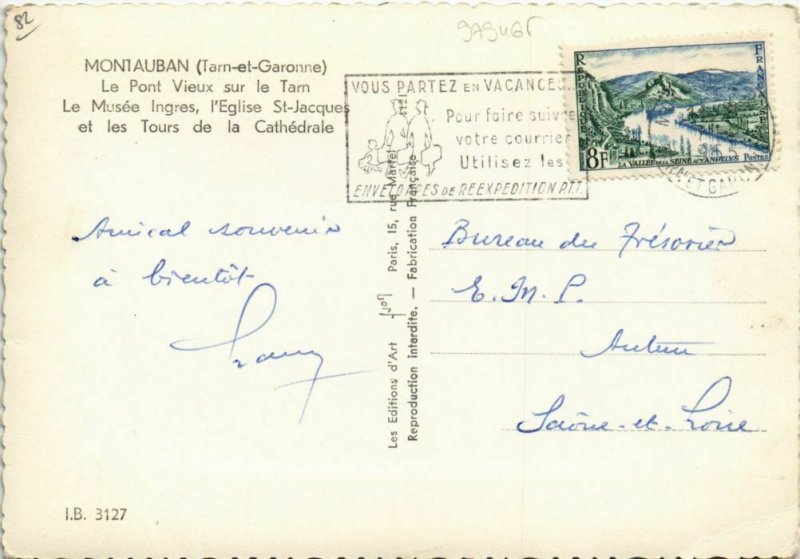 82
979465
MONTAUBAN (Tarn-et-Garonne)
Le Pont Vieux sur le Tarn
Le Musée Ingres, l'Eglise St-Jacques
et les Tours de la Cathédrale
VOUS PARTEZ EN VACANCES...
Pour faire suivre
votre courrier
Utilisez les
ENVELOPPES DE RÉEXPEDITION P.T.T.
REPUBLIQUE
FRANÇAISE
8F
LA VALLÉE DE LA SEINE AUX ANDELYS
POSTES
ET GARONNE
Amical souvenir
à bientôt
Bureau du Trésorier
E. M. P.
Autun
Saône-et-Loire
Les Editions d'Art Yvon Paris, 15, rue Martel
Reproduction interdite. — Fabrication Française
I.B. 3127